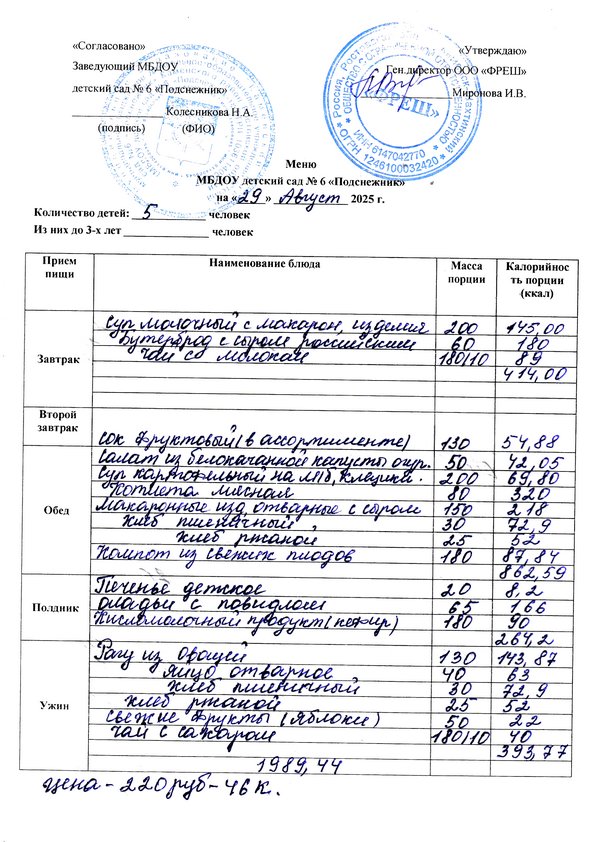 «Согласовано»
«Утверждаю»
Заведующий МБДОУ
Ген.директор ООО «ФРЕШ»
детский сад № 6 «Подснежник»
Миронова И.В.
Колесникова Н.А.
(подпись) (ФИО)
«ФРЕШ»
ИНН 6147042770
ОГРН 1246100032420
Меню
МБДОУ детский сад № 6 «Подснежник»
на «29» Август 2025 г.
Количество детей: 5 человек
Из них до 3-х лет человек
Прием пищи Наименование блюда Масса порции Калорийность порции (ккал)
Завтрак
Суп молочный с макарон, изделия 200 145,00
Бутерброд с сыром российским 60 180
Чай со молокам 180/10 89
414,00
Второй завтрак
сок фруктовый (в ассортименте) 130 54,88
Обед
Салат из белокачанной капусты огур. 50 42,05
Суп картофельный на м/б, клецики. 200 69,80
Котлета мясная 80 320
Макаронные изд отварные с сыром 150 218
Хлеб пшеничный 30 72,9
хлеб ржаной 25 52
Компот из свежих плодов 180 87,84
862,59
Полдник
Печенье детское 20 8,2
оладьи с повидлом 65 166
Кисломолочный продукт (кефир) 180 90
264,2
Ужин
Рагу из овощей 130 143,87
Яйцо отварное 40 63
Хлеб пшеничный 30 72,9
хлеб ржаной 25 52
Свежие фрукты (яблоки) 50 22
чай с сахаром 180/10 40
393,77
1989,44
цена - 220 руб - 46 к.